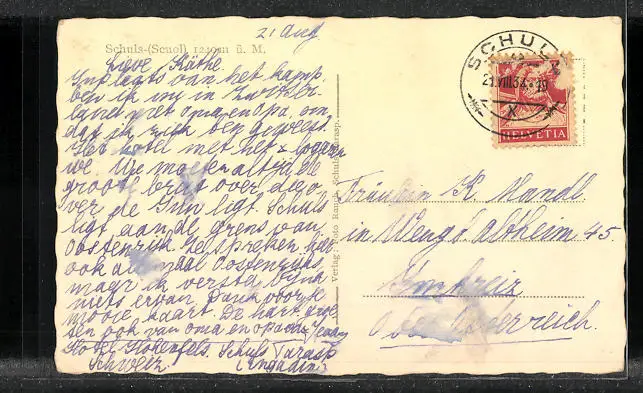 21 Aug
Schuls-(Scuol) 1240m ü. M.
Lieve Käthe.
In plaats van het kamp
ben ik nu in Zwitser-
land met oma en opa, om
dat ik ziek ben geweest.
Het hotel met het x logeren
we. We moeten altijd die
groote brug over die o-
ver de Inn ligt. Schuls
ligt aan de grens van
Oostenrijk. Ze spreken hier
ook allemaal Oostenrijks,
maar ik versta bijna
niets ervan. Dank voor je
mooie kaart. De hartelijke
ook van oma en opa
Hotel Hohenfels. Schuls Tarasp
Schweiz. (Engadin)
Verlag Foto Schuls-Tarasp.
SCHULS
21.VIII.34.-19
HELVETIA
Fräulein K. Mandl
in Weng b. Altheim 45.
Innkreis
Oberösterreich.